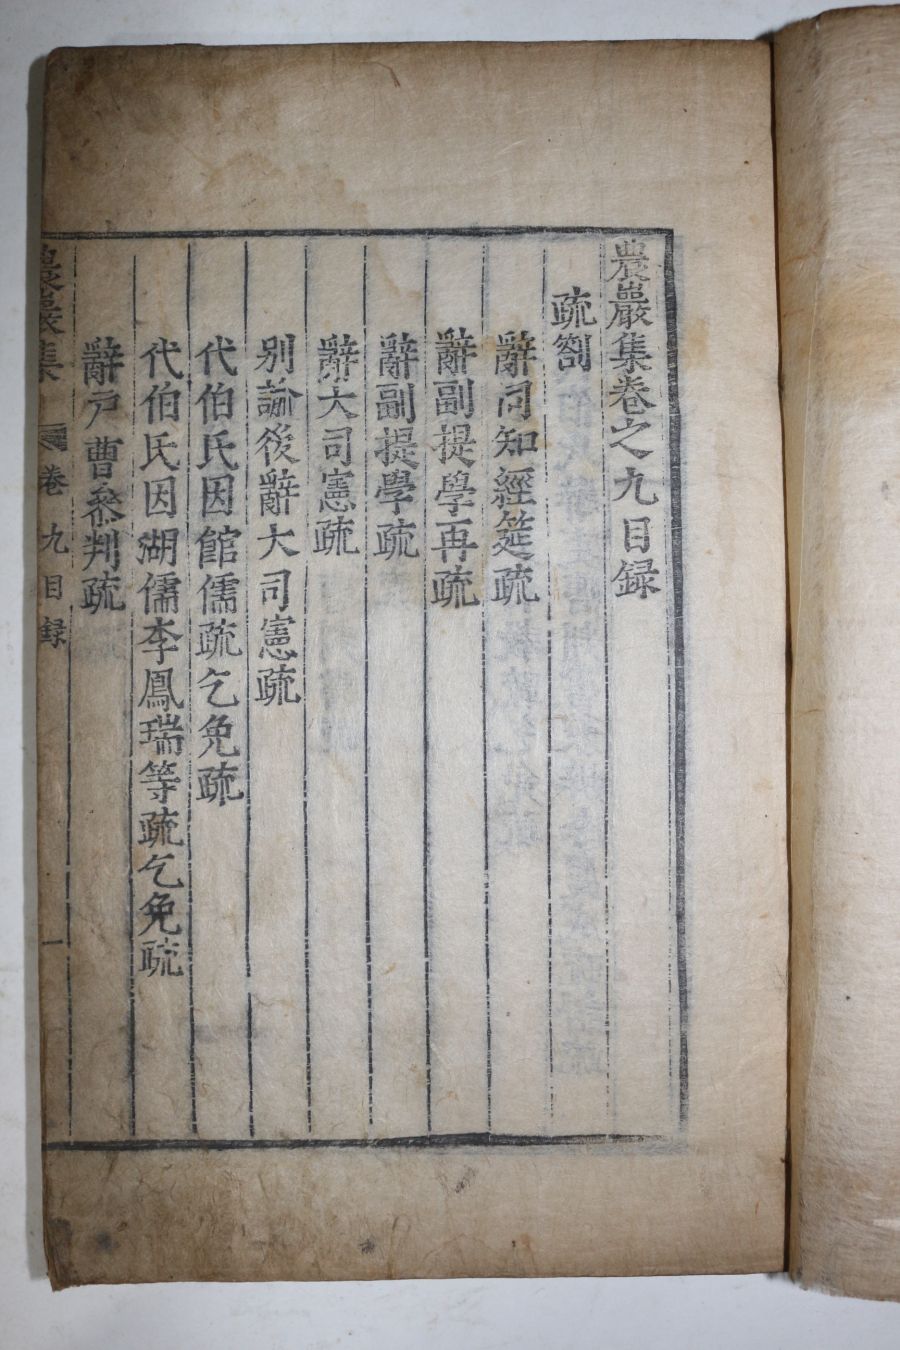 農巖集卷之九目録
疏劄
辭同知經筵疏
辭副提學再疏
辭副提學疏
辭大司憲疏
別諭後辭大司憲疏
代伯氏因館儒疏乞免疏
代伯氏因湖儒李鳳瑞等疏乞免疏
辭戶曹叅判疏
農巖集 卷九目録 一